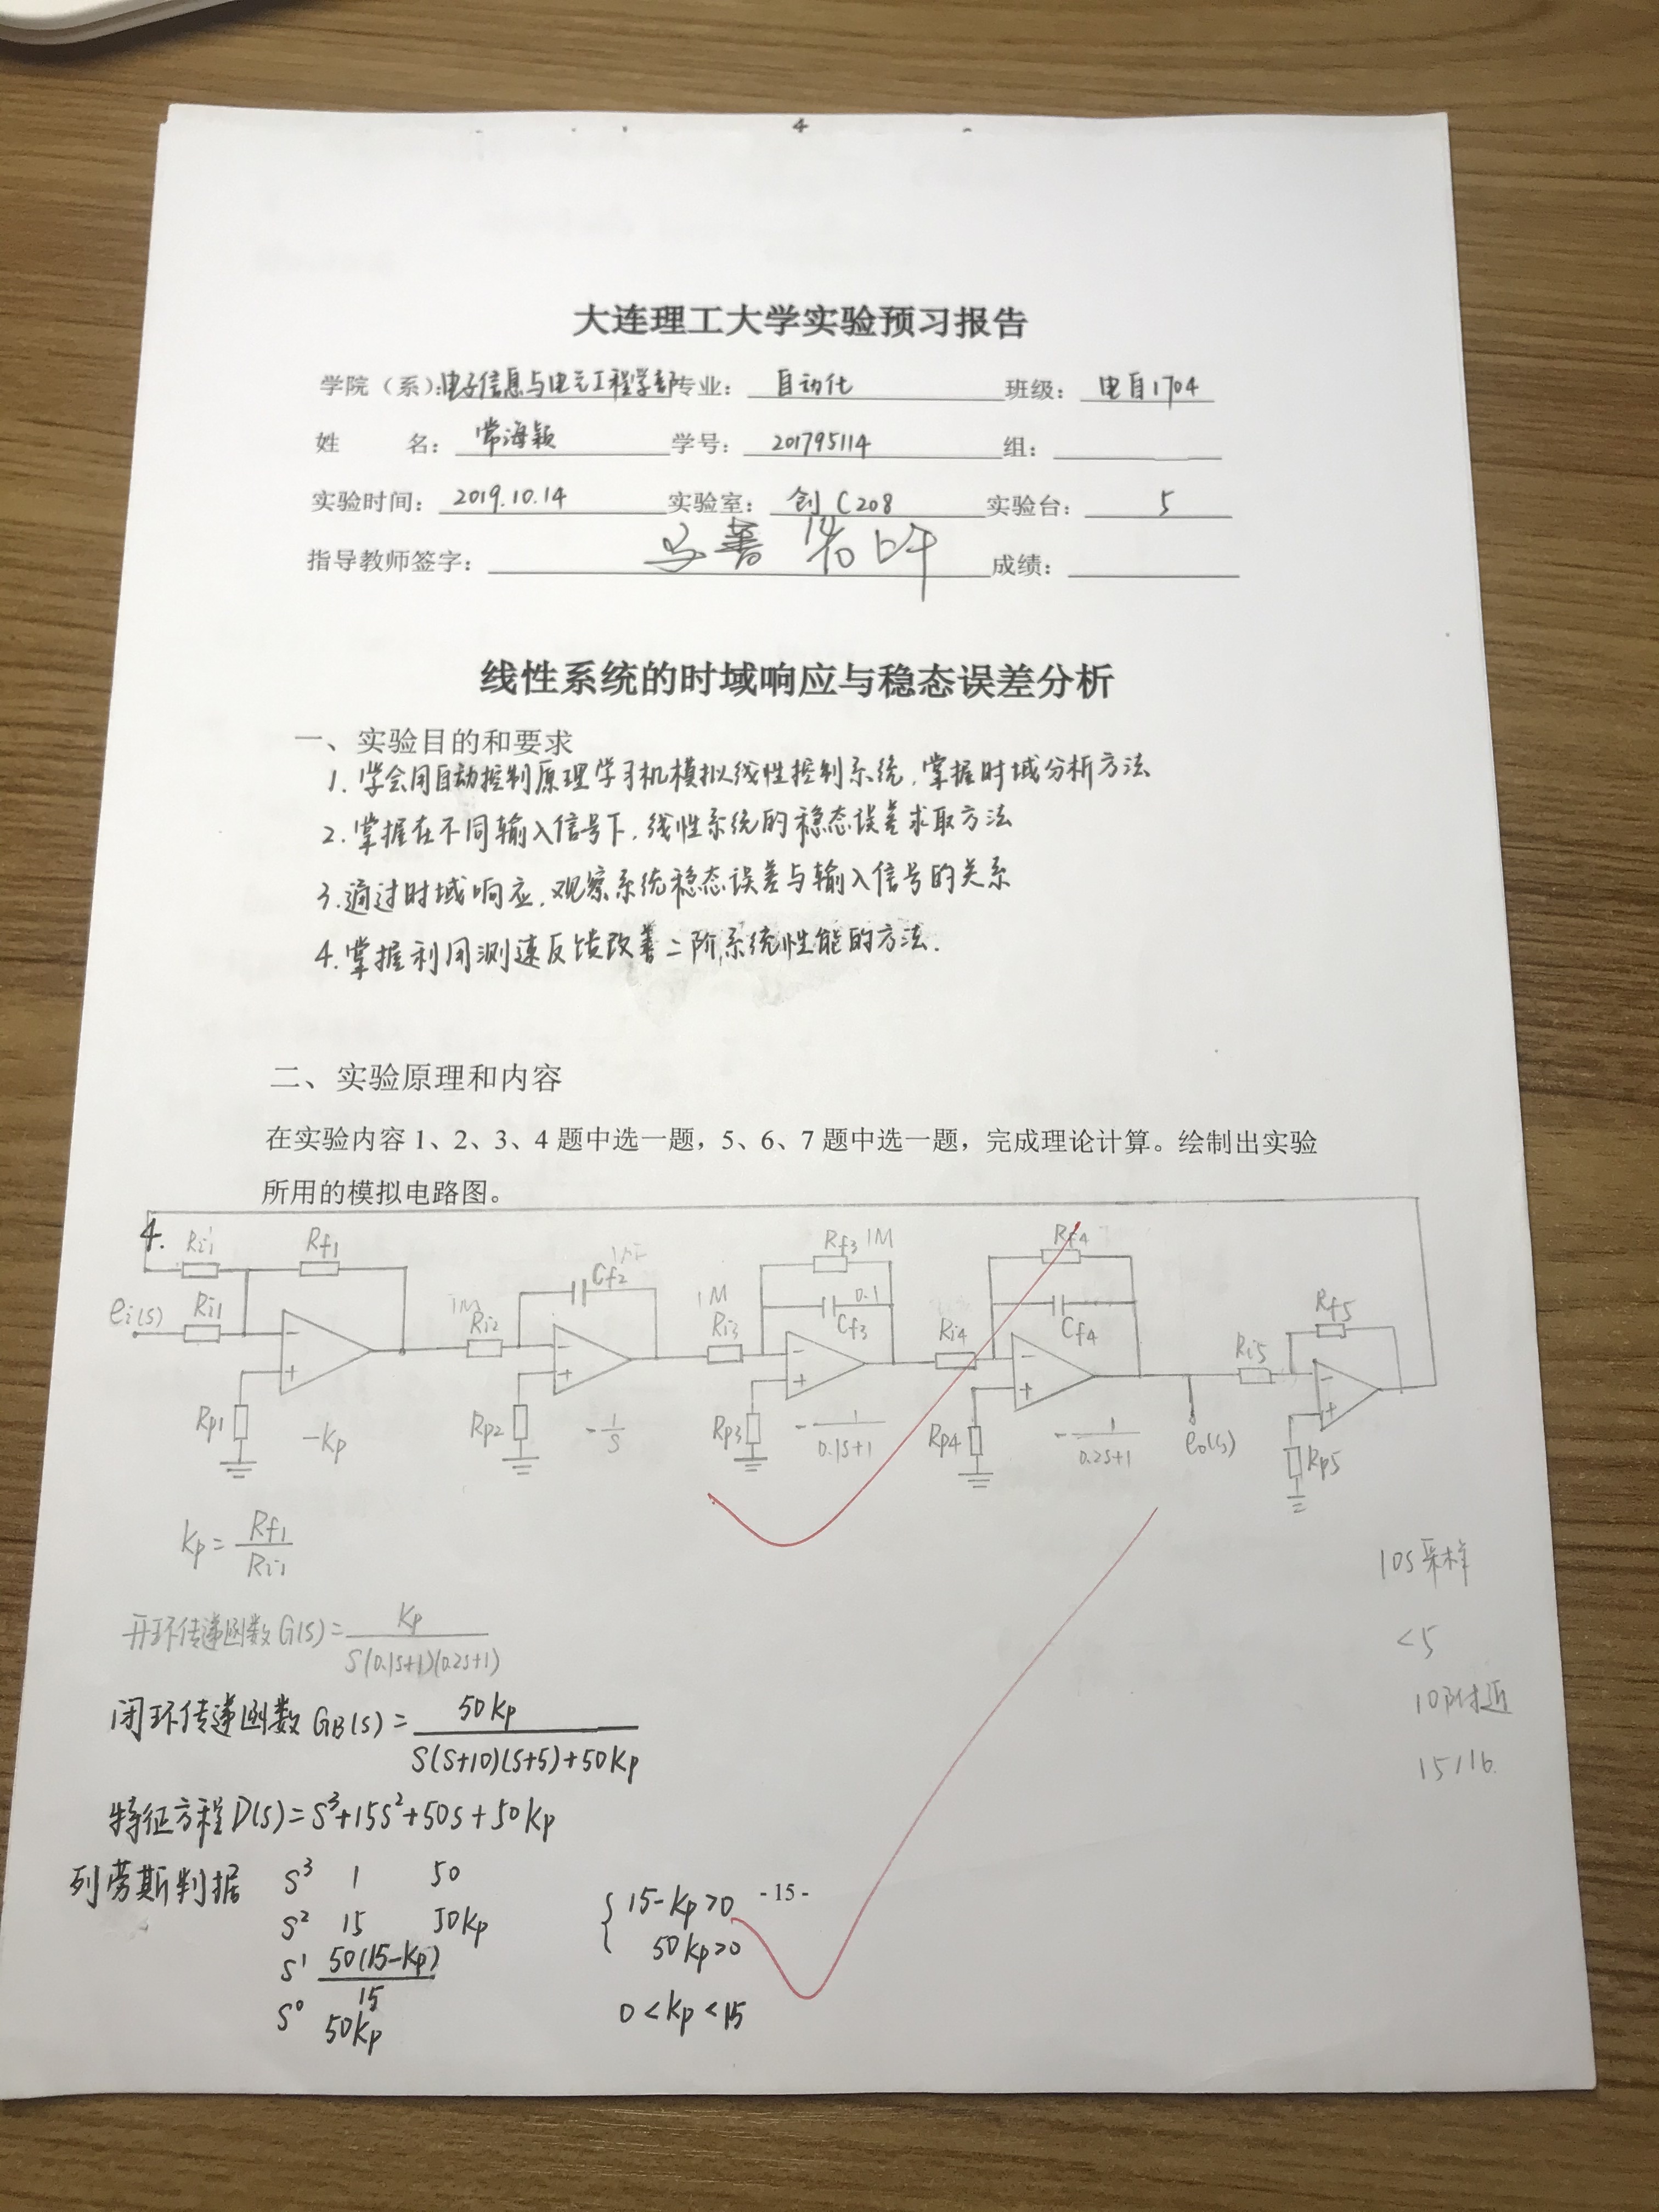 大连理工大学实验预习报告
学院（系）：电子信息与电气工程学部 专业： 自动化 班级： 电自1704
姓 名： 常海颖 学号： 201795114 组：
实验时间： 2019.10.14 实验室： 创C208 实验台： 5
指导教师签字： 成绩：
线性系统的时域响应与稳态误差分析
一、实验目的和要求
1. 学会用自动控制原理学习机模拟线性控制系统，掌握时域分析方法
2. 掌握在不同输入信号下，线性系统的稳态误差求取方法
3. 通过时域响应，观察系统稳态误差与输入信号的关系
4. 掌握利用测速反馈改善二阶系统性能的方法.
二、实验原理和内容
在实验内容 1、2、3、4 题中选一题，5、6、7 题中选一题，完成理论计算。绘制出实验
所用的模拟电路图。
4.
Ri1 Rf1 1μF Cf2 Rf3 1M Rf4
ei(s) Ri1 1M Ri2 1M Ri3 0.1 Cf3 Ri4 Cf4 Ri5 Rf5
Rp1 -Kp Rp2 -1/S Rp3 -1/(0.1S+1) Rp4 -1/(0.2S+1) eo(s) Rp5
Kp = Rf1/Ri1
开环传递函数 G(s) = Kp/(S(0.1S+1)(0.2S+1))
闭环传递函数 GB(s) = 50Kp/(S(S+10)(S+5)+50Kp)
特征方程 D(s) = S³+15S²+50S+50Kp
列劳斯判据 S³ 1 50
S² 15 50Kp
S¹ 50(15-Kp)/15
S⁰ 50Kp
{ 15-Kp>0
50Kp>0
0<Kp<15
10S采样
<5
10附近
15/16.
- 15 -